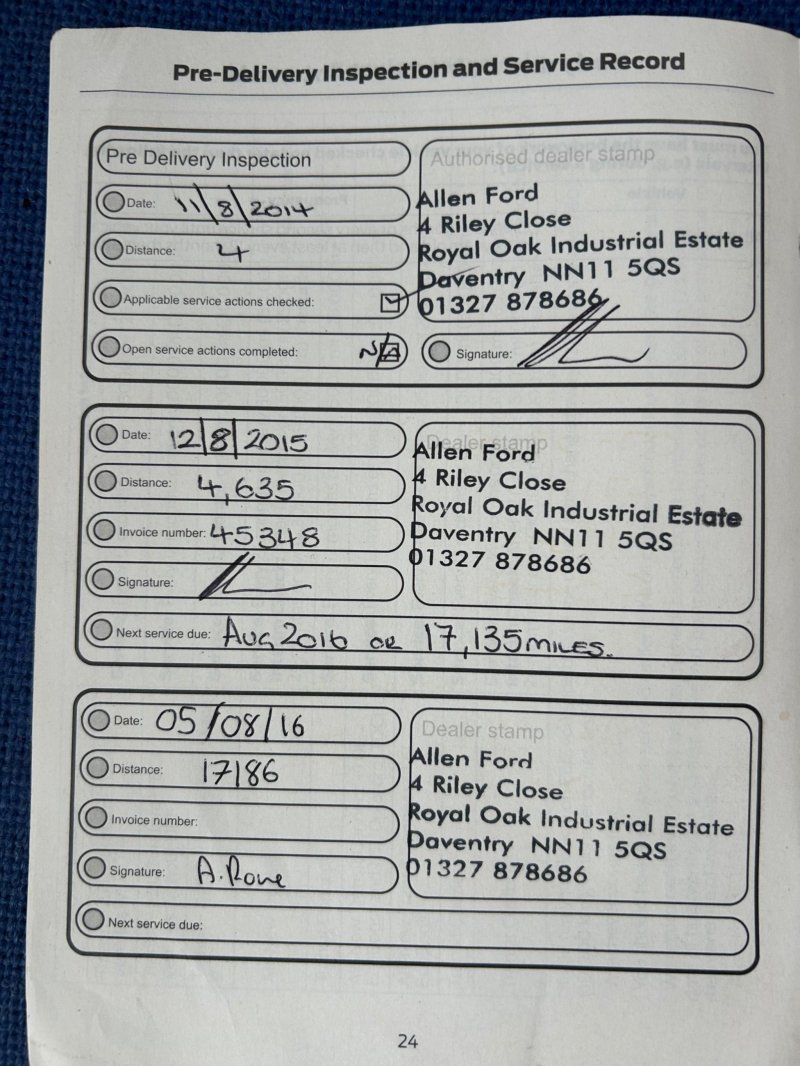 Pre-Delivery Inspection and Service Record
Pre Delivery Inspection
Date: 11/8/2014
Distance: 4
Applicable service actions checked:
Open service actions completed: N/A
Authorised dealer stamp
Allen Ford
4 Riley Close
Royal Oak Industrial Estate
Daventry NN11 5QS
01327 878686
Signature:
Date: 12/8/2015
Distance: 4,635
Invoice number: 45348
Signature:
Dealer stamp
Allen Ford
4 Riley Close
Royal Oak Industrial Estate
Daventry NN11 5QS
01327 878686
Next service due: Aug 2016 or 17,135 miles.
Date: 05/08/16
Distance: 17186
Invoice number:
Signature: A. Rowe
Dealer stamp
Allen Ford
4 Riley Close
Royal Oak Industrial Estate
Daventry NN11 5QS
01327 878686
Next service due:
24